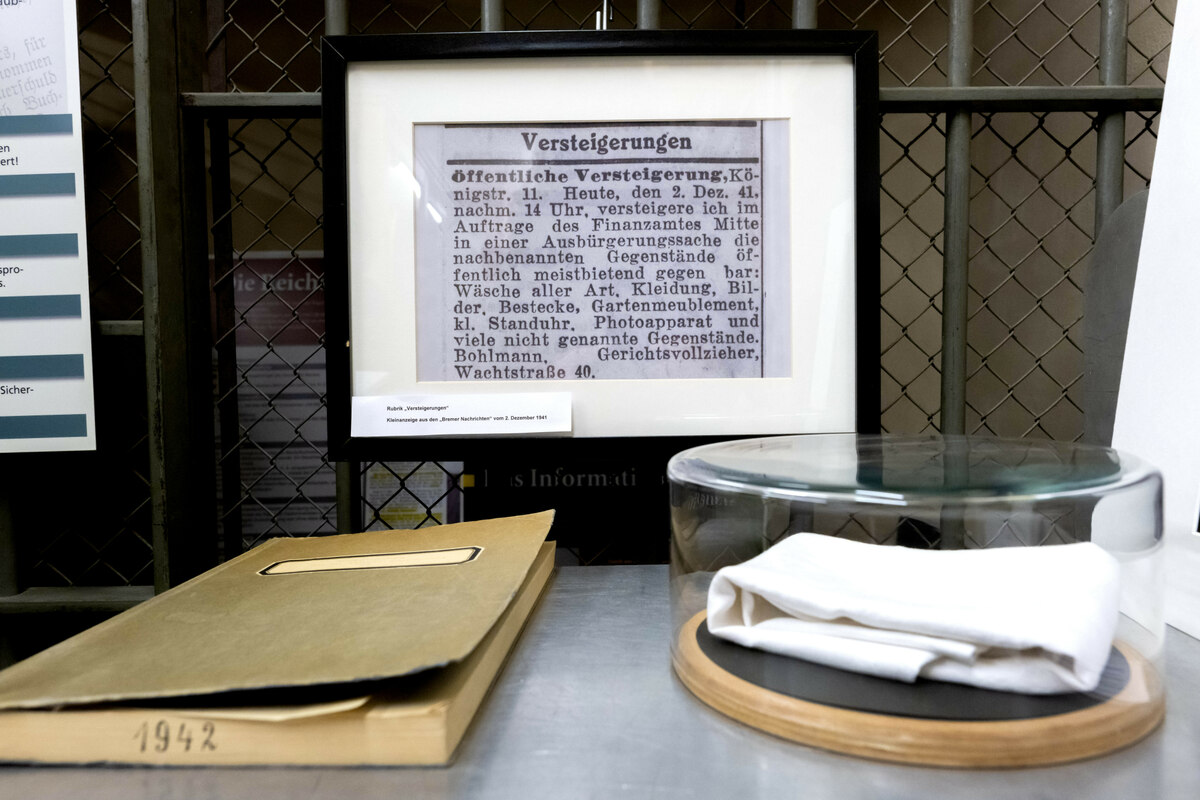 es, für
ommen
erschuld
ch Buch-
en
ert!
spro-
s.
Sicher-
Die Reich
Versteigerungen
öffentliche Versteigerung, Kö-
nigstr. 11. Heute, den 2. Dez. 41,
nachm. 14 Uhr, versteigere ich im
Auftrage des Finanzamtes Mitte
in einer Ausbürgerungssache die
nachbenannten Gegenstände öf-
fentlich meistbietend gegen bar:
Wäsche aller Art, Kleidung, Bil-
der, Bestecke, Gartenmeublement,
kl. Standuhr, Photoapparat und
viele nicht genannte Gegenstände.
Bohlmann, Gerichtsvollzieher,
Wachtstraße 40.
Rubrik „Versteigerungen“
Kleinanzeige aus den „Bremer Nachrichten“ vom 2. Dezember 1941
as Informati
1942